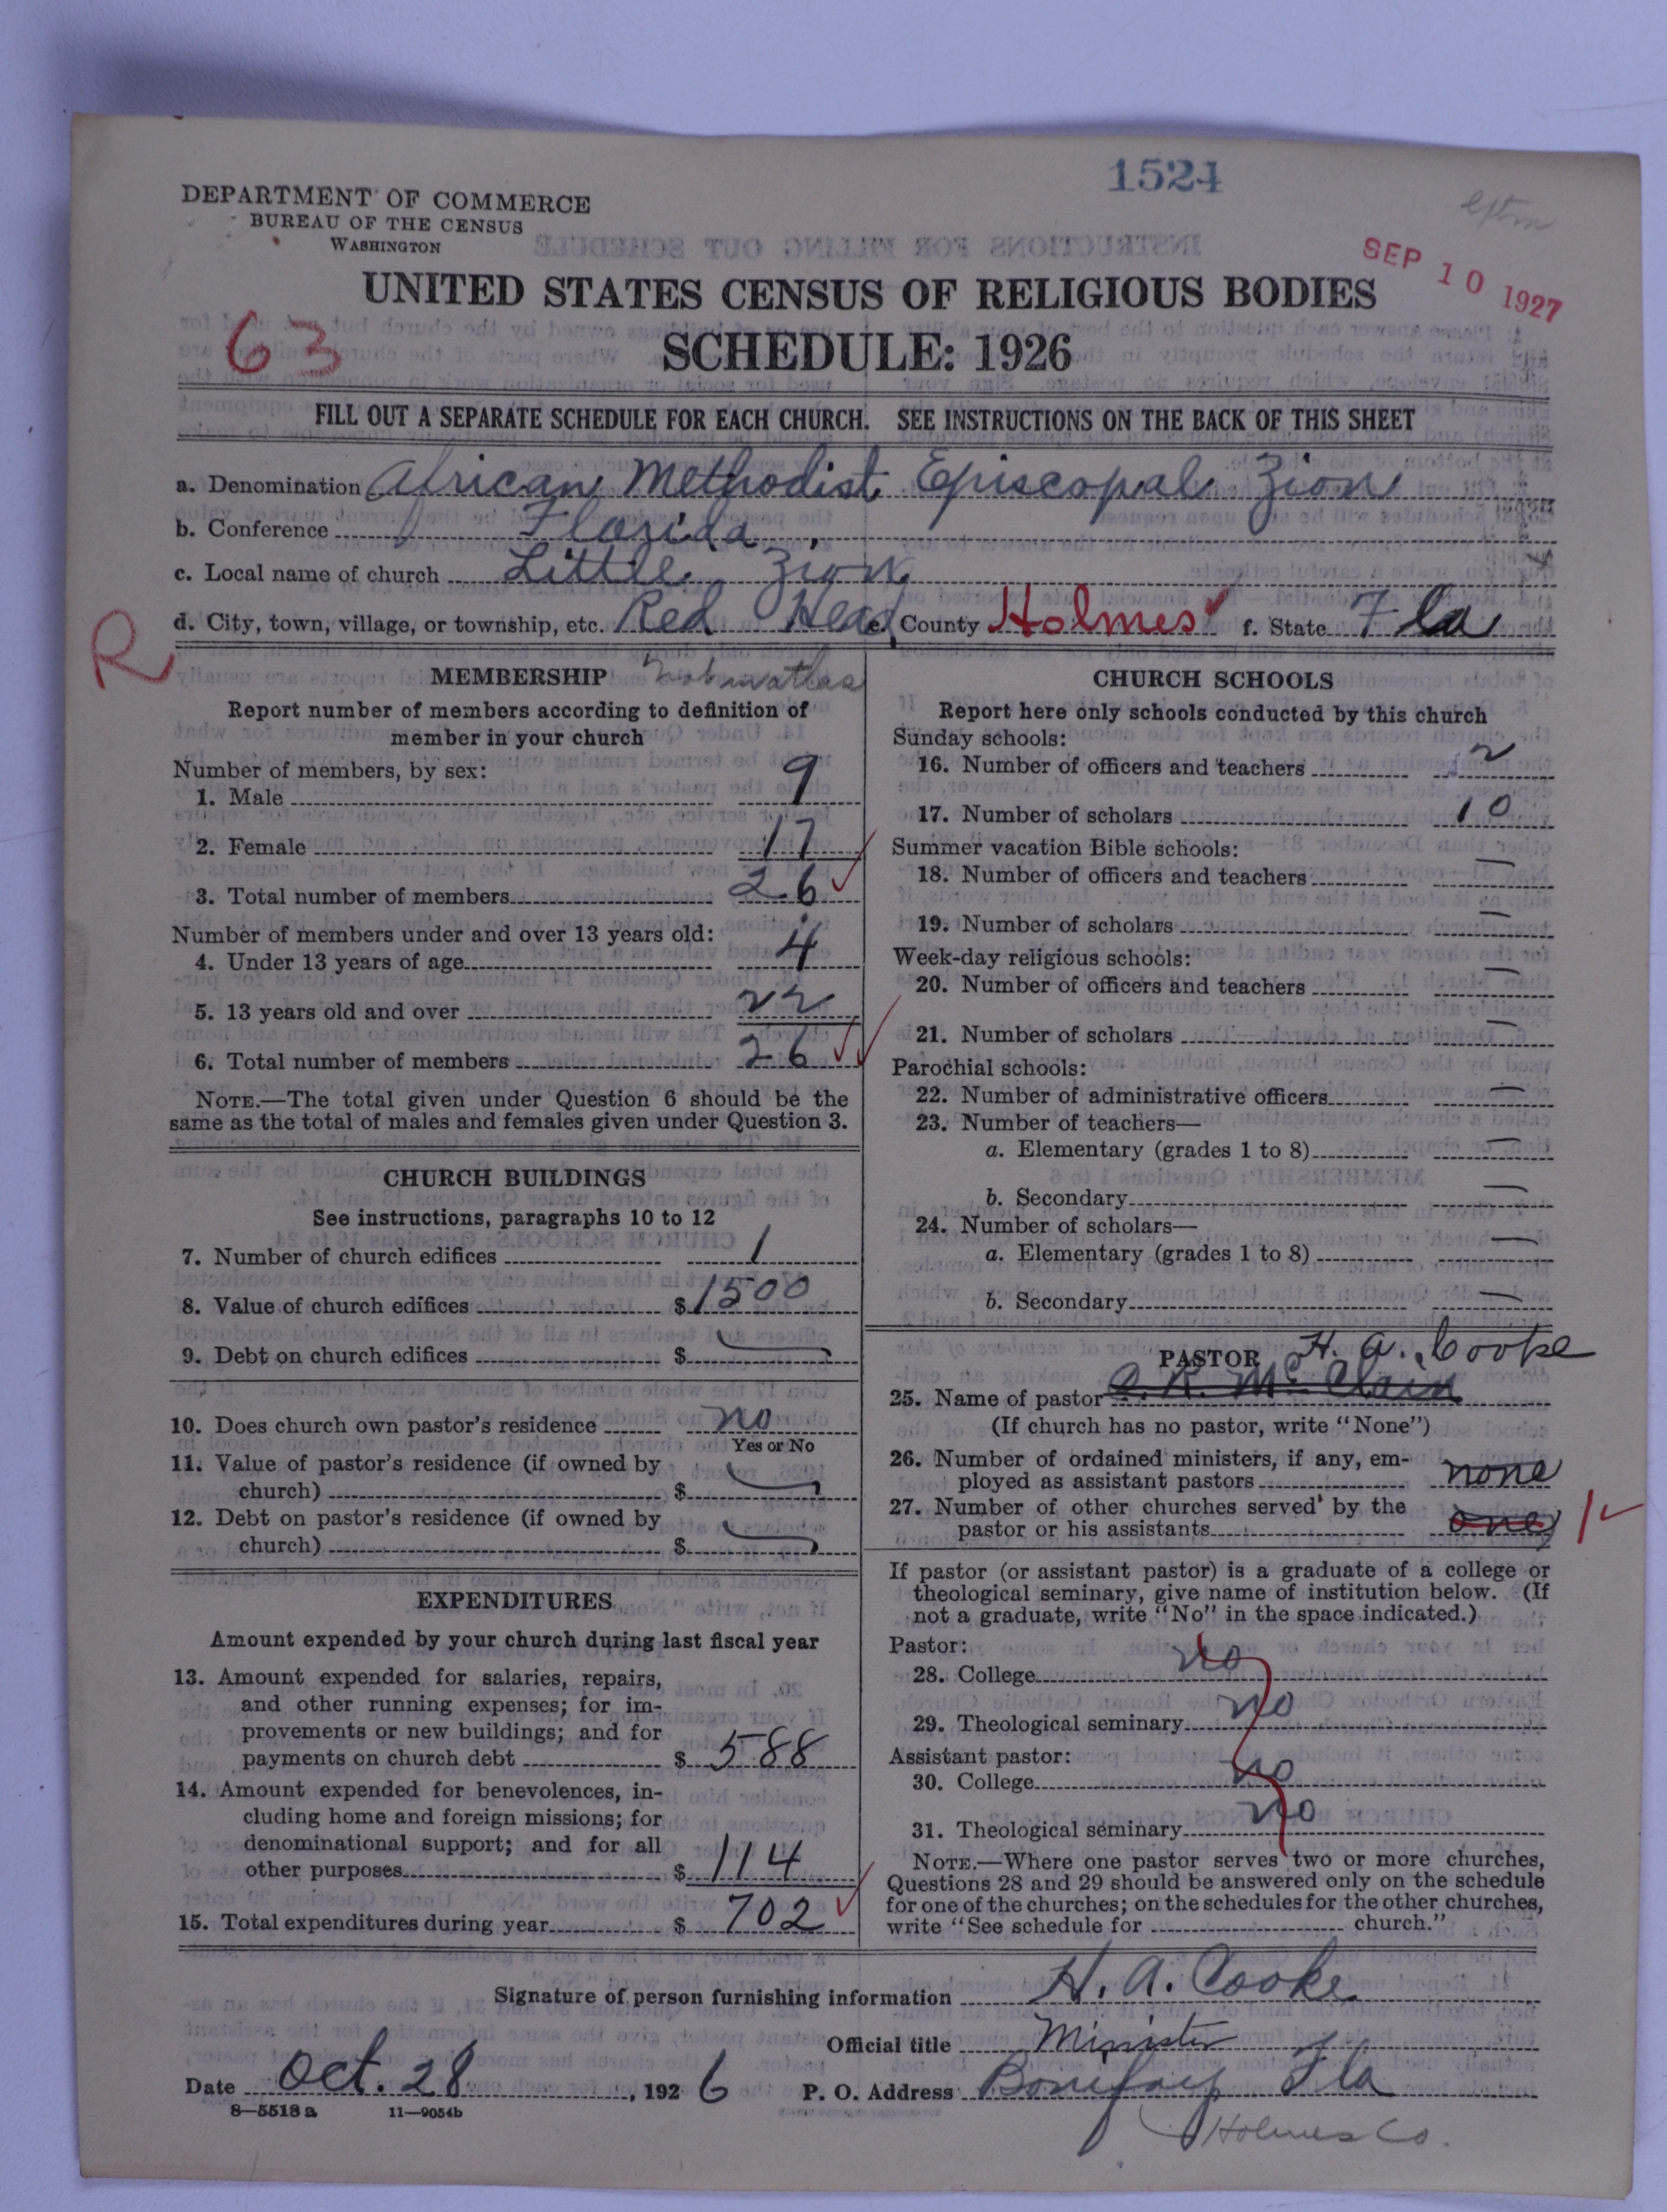 1524
DEPARTMENT OF COMMERCE
BUREAU OF THE CENSUS
WASHINGTON
SEP 10 1927
UNITED STATES CENSUS OF RELIGIOUS BODIES
63
SCHEDULE: 1926
FILL OUT A SEPARATE SCHEDULE FOR EACH CHURCH. SEE INSTRUCTIONS ON THE BACK OF THIS SHEET
a. Denomination African Methodist Episcopal Zion
b. Conference Florida
c. Local name of church Little Zion
d. City, town, village, or township, etc. Red Head e. County Holmes f. State Fla
R
MEMBERSHIP
Report number of members according to definition of
member in your church
Number of members, by sex:
1. Male 9
2. Female 17
3. Total number of members 26
Number of members under and over 13 years old:
4. Under 13 years of age 4
5. 13 years old and over 22
6. Total number of members 26
NOTE.—The total given under Question 6 should be the
same as the total of males and females given under Question 3.
CHURCH BUILDINGS
See instructions, paragraphs 10 to 12
7. Number of church edifices 1
8. Value of church edifices $ 1500
9. Debt on church edifices $ —
10. Does church own pastor's residence no
Yes or No
11. Value of pastor's residence (if owned by
church) $ —
12. Debt on pastor's residence (if owned by
church) $ —
EXPENDITURES
Amount expended by your church during last fiscal year
13. Amount expended for salaries, repairs,
and other running expenses; for im-
provements or new buildings; and for
payments on church debt $ 588
14. Amount expended for benevolences, in-
cluding home and foreign missions; for
denominational support; and for all
other purposes $ 114
15. Total expenditures during year $ 702
CHURCH SCHOOLS
Report here only schools conducted by this church
Sunday schools:
16. Number of officers and teachers 2
17. Number of scholars 10
Summer vacation Bible schools:
18. Number of officers and teachers —
19. Number of scholars —
Week-day religious schools:
20. Number of officers and teachers —
21. Number of scholars —
Parochial schools:
22. Number of administrative officers —
23. Number of teachers—
a. Elementary (grades 1 to 8) —
b. Secondary —
24. Number of scholars—
a. Elementary (grades 1 to 8) —
b. Secondary —
PASTOR H. A. Cooke
25. Name of pastor R. McClain
(If church has no pastor, write "None")
26. Number of ordained ministers, if any, em-
ployed as assistant pastors none
27. Number of other churches served by the
pastor or his assistants one 1
If pastor (or assistant pastor) is a graduate of a college or
theological seminary, give name of institution below. (If
not a graduate, write "No" in the space indicated.)
Pastor:
28. College no
29. Theological seminary no
Assistant pastor:
30. College no
31. Theological seminary no
NOTE.—Where one pastor serves two or more churches,
Questions 28 and 29 should be answered only on the schedule
for one of the churches; on the schedules for the other churches,
write "See schedule for church."
Signature of person furnishing information H. A. Cooke
Official title Minister
Date Oct. 28, 1926 P. O. Address Bonifay Fla
8—5518 a 11—9054b
Holmes Co.